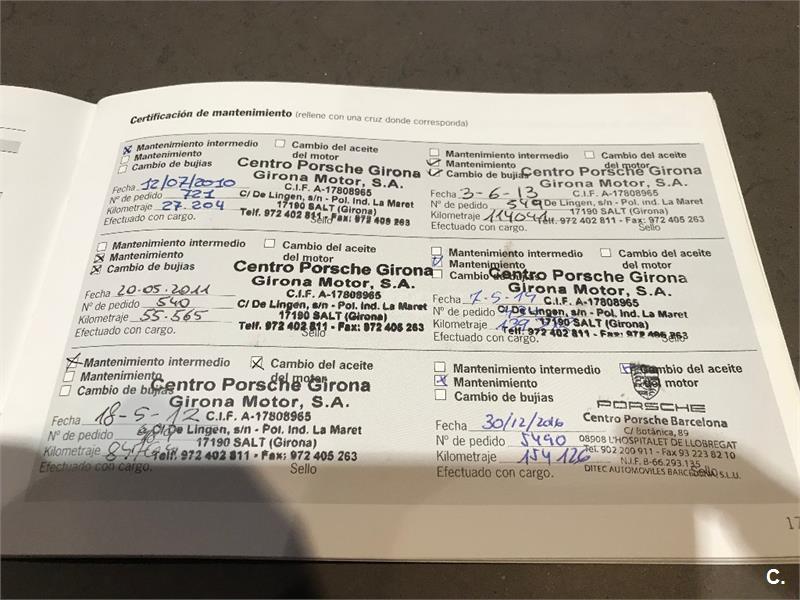 Certificación de mantenimiento (rellene con una cruz donde corresponda)
Mantenimiento intermedio Cambio del aceite del motor
Mantenimiento
Cambio de bujias
Centro Porsche Girona
Girona Motor, S.A.
C.I.F. A-17808965
C/ De Lingen, s/n - Pol. Ind. La Maret
17190 SALT (Girona)
Telf. 972 402 811 - Fax: 972 405 263
Fecha 12/07/2010
Nº de pedido 721
Kilometraje 27.204
Efectuado con cargo. Sello
Mantenimiento intermedio Cambio del aceite del motor
Mantenimiento
Cambio de bujias
Centro Porsche Girona
Girona Motor, S.A.
C.I.F. A-17808965
De Lingen, s/n - Pol. Ind. La Maret
17190 SALT (Girona)
Telf. 972 402 811 - Fax: 972 405 263
Fecha 3-6-13
Nº de pedido 549
Kilometraje 114041
Efectuado con cargo. Sello
Mantenimiento intermedio Cambio del aceite del motor
Mantenimiento
Cambio de bujias
Centro Porsche Girona
Girona Motor, S.A.
C.I.F. A-17808965
C/ De Lingen, s/n - Pol. Ind. La Maret
17190 SALT (Girona)
Telf. 972 402 811 - Fax: 972 405 263
Fecha 20-05-2011
Nº de pedido 540
Kilometraje 55.565
Efectuado con cargo.
Mantenimiento intermedio Cambio del aceite del motor
Mantenimiento
Cambio de bujias
Centro Porsche Girona
Girona Motor, S.A.
C.I.F. A-17808965
C/ De Lingen, s/n - Pol. Ind. La Maret
17190 SALT (Girona)
Telf. 972 402 811 - Fax: 972 405 263
Fecha
Nº de pedido
Kilometraje
Efectuado con cargo. Sello
Mantenimiento intermedio Cambio del aceite del motor
Mantenimiento
Cambio de bujias
Centro Porsche Girona
Girona Motor, S.A.
C.I.F. A-17808965
C/ De Lingen, s/n - Pol. Ind. La Maret
17190 SALT (Girona)
Telf. 972 402 811 - Fax: 972 405 263
Fecha 18-5-12
Nº de pedido
Kilometraje
Efectuado con cargo. Sello
Mantenimiento intermedio Cambio del aceite del motor
Mantenimiento
Cambio de bujias
PORSCHE
Centro Porsche Barcelona
C/ Botánica, 89
08908 L'HOSPITALET DE LLOBREGAT
Tel. 902 200 911 - Fax 93 223 82 10
N.I.F. B-66.293.135
DITEC AUTOMOVILES BARCELONA S.L.U.
Fecha 30/12/2016
Nº de pedido 5490
Kilometraje 154126
Efectuado con cargo. Sello
C.